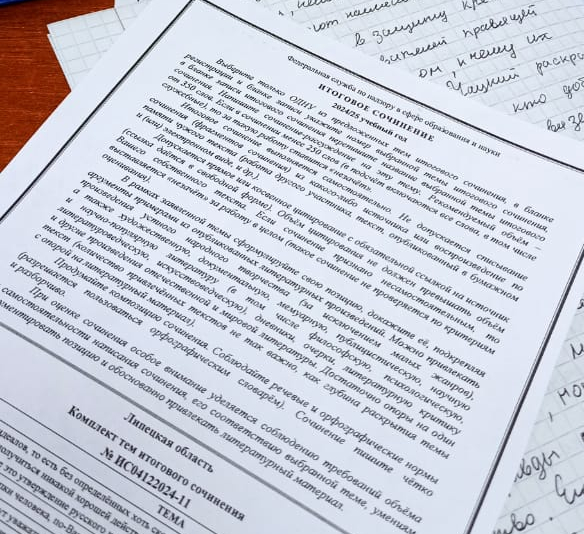 Федеральная служба по надзору в сфере образования и науки
ИТОГОВОЕ СОЧИНЕНИЕ
2024/25 учебный год
Выберите только ОДНУ из предложенных тем итогового сочинения, в бланке
регистрации и бланке записи укажите номер выбранной темы итогового сочинения,
в бланке записи итогового сочинения перепишите название выбранной темы итогового
сочинения. Напишите сочинение-рассуждение на эту тему. Рекомендуемый объём –
от 350 слов. Если в сочинении менее 250 слов (в подсчёт включаются все слова, в том числе
служебные), то за такую работу ставится «незачёт».
Итоговое сочинение выполняется самостоятельно. Не допускается списывание
сочинения (фрагментов сочинения) из какого-либо источника или воспроизведение по
памяти чужого текста (работа другого участника, текст, опубликованный в бумажном
и (или) электронном виде, и др.).
Допускается прямое или косвенное цитирование с обязательной ссылкой на источник
(ссылка даётся в свободной форме). Объём цитирования не должен превышать объём
Вашего собственного текста. Если сочинение признано несамостоятельным, то
выставляется «незачёт» за работу в целом (такое сочинение не проверяется по критериям
оценивания).
В рамках заявленной темы сформулируйте свою позицию, докажите её, подкрепляя
аргументы примерами из опубликованных литературных произведений. Можно привлекать
произведения устного народного творчества (за исключением малых жанров),
а также художественную, документальную, мемуарную, публицистическую, научную
и научно-популярную литературу (в том числе философскую, психологическую,
литературоведческую, искусствоведческую), дневники, очерки, литературную критику
и другие произведения отечественной и мировой литературы. Достаточно опоры на один
текст (количество привлечённых текстов не так важно, как глубина раскрытия темы
с опорой на литературный материал).
Продумайте композицию сочинения. Соблюдайте речевые и орфографические нормы
(разрешается пользоваться орфографическим словарём). Сочинение пишите чётко
и разборчиво.
При оценке сочинения особое внимание уделяется соблюдению требований объёма
самостоятельности написания сочинения, его соответствию выбранной теме, умениям
позицию и обоснованно привлекать литературный материал.
Липецкая область
Комплект тем итогового сочинения
№ ИС04122024-11
ТЕМА
то есть без определённых хоть
никакой хорошей
это утверждение русского
человека,
в защиту
правящей
к нему их
Чацкий
кто